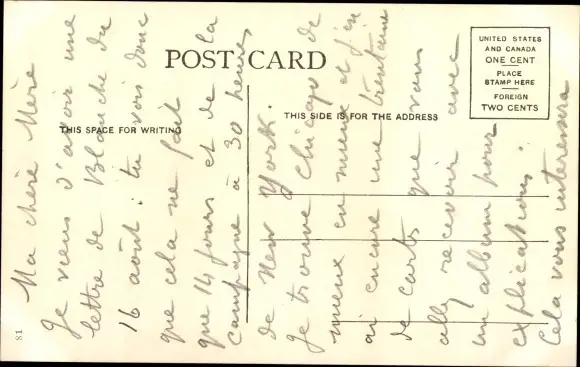 POST CARD
THIS SPACE FOR WRITING
THIS SIDE IS FOR THE ADDRESS
UNITED STATES
AND CANADA
ONE CENT
PLACE
STAMP HERE
FOREIGN
TWO CENTS
81
Ma chère Mère
Je viens d'avoir une
lettre de Blanche du
16 août. tu vois donc
que cela ne fait
que 14 jours et de la
campagne à 30 heures
de New York.
Je trouve Chicago de
mieux en mieux et j'en
ai encore une trentaine
de carts que vous
allez recevoir avec
un album pour
explications.
Cela vous interessera